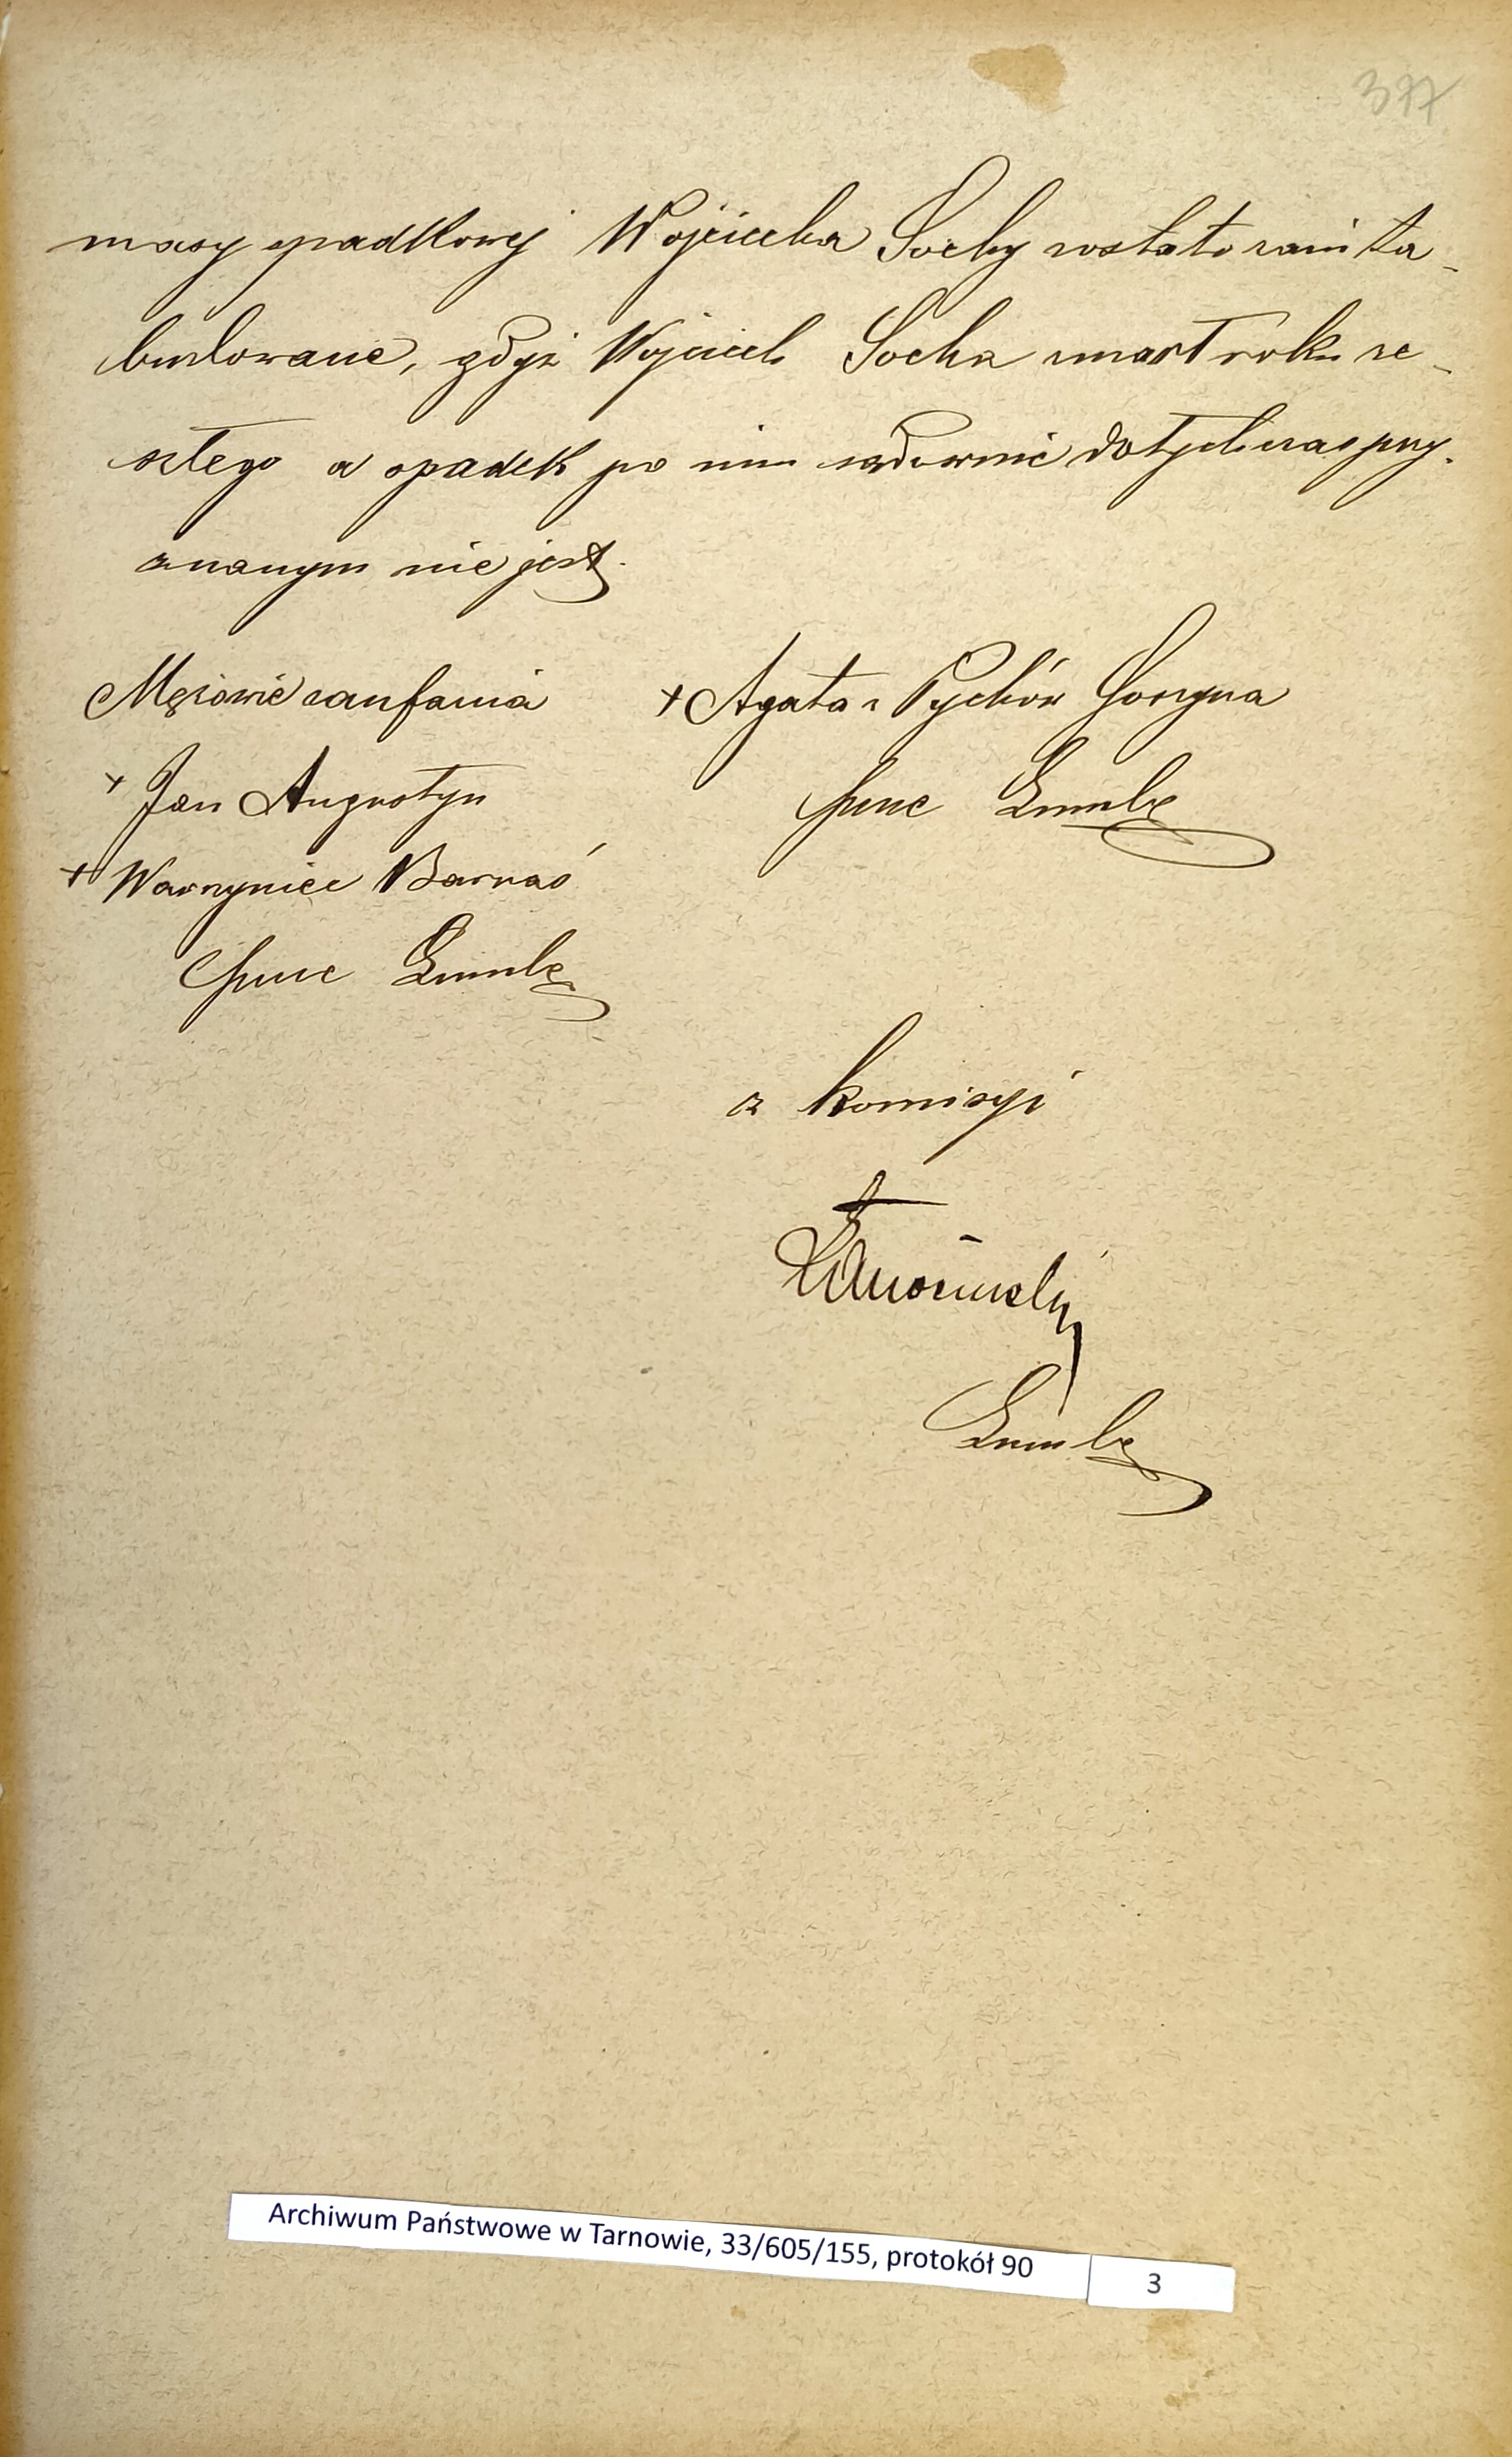 377
masy spadkowej Wojciecha Sochy zostało zainta-
bulowane, gdyż Wojciech Socha umarł roku ze-
szłego a spadek po nim sądownie dotychczas przy-
znanym nie jest.
Mężowie zaufania
+ Jan Augustyn
+ Wawrzyniec Barnaś
+ Agata z Pychów Goryna
z komisyi
Archiwum Państwowe w Tarnowie, 33/605/155, protokół 90
3